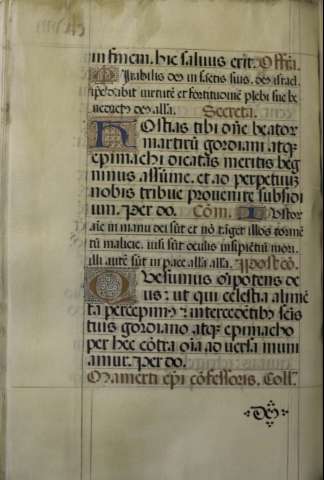 in finem. hic saluus erit. Offia.
Mirabilis deꝰ in sctis suis. deꝰ israel
ipse dabit virtutē et fortitudinē plebi sue be
nedictꝰ deꝰ alla. Secreta.
Hostias tibi dn̄e beator
martirū gordiani atqꝫ
epimachi dicatas meritis beg
nimus assume. et ad perpetuū
nobis tribue prouenire subsidi
um. Per do. Cōm. Iustor
aīe in manu dei sūt et nō tāget illos tormē
tū malicie. uisi sūt oculis insipiētiū mori.
illi autē sūt in pace alla alla. Post cō.
Quesumus oīpotens de
us: ut qui celestia alimē
ta percepimꝰ: intercedētibꝰ scīs
tuis gordiano atqꝫ epimacho
per hec cōtra oīa aduersa muni
amur. Per do.
Mamerti epi cōfessoris. Coll.
De